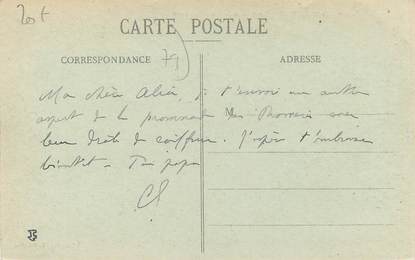 20 t
CARTE POSTALE
CORRESPONDANCE 79)
ADRESSE
Ma chère Alice, je t'envoie un autre
aspect de la promenade des avec
leur drôle de coiffure. J'espère t'embrasser
bientôt - Ton papa